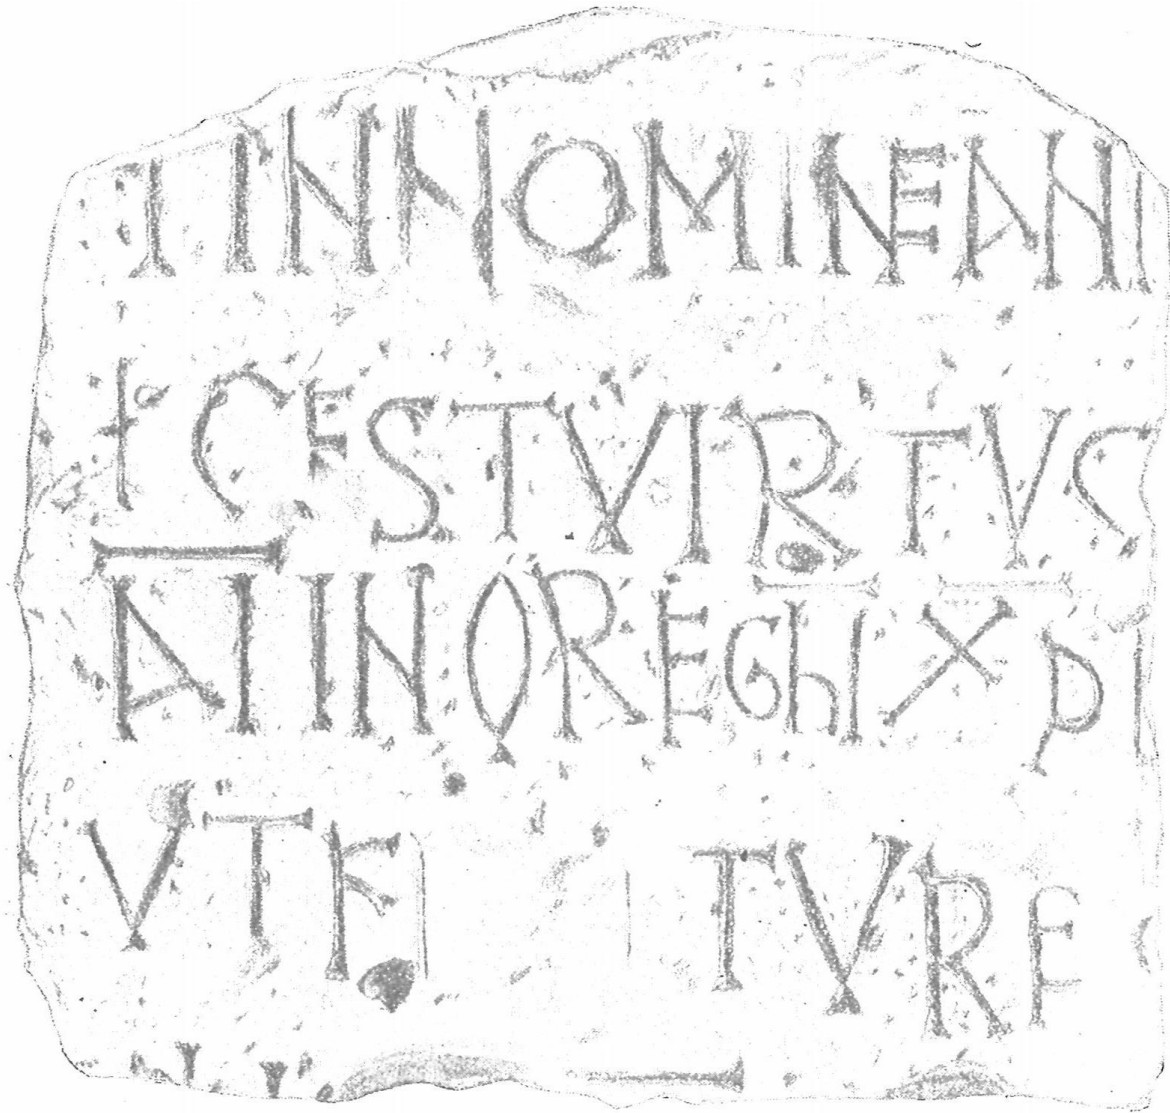 TINNOMINEANI
ICESTVIRTVS
AIINOREGhIXPI
VTE TVRE